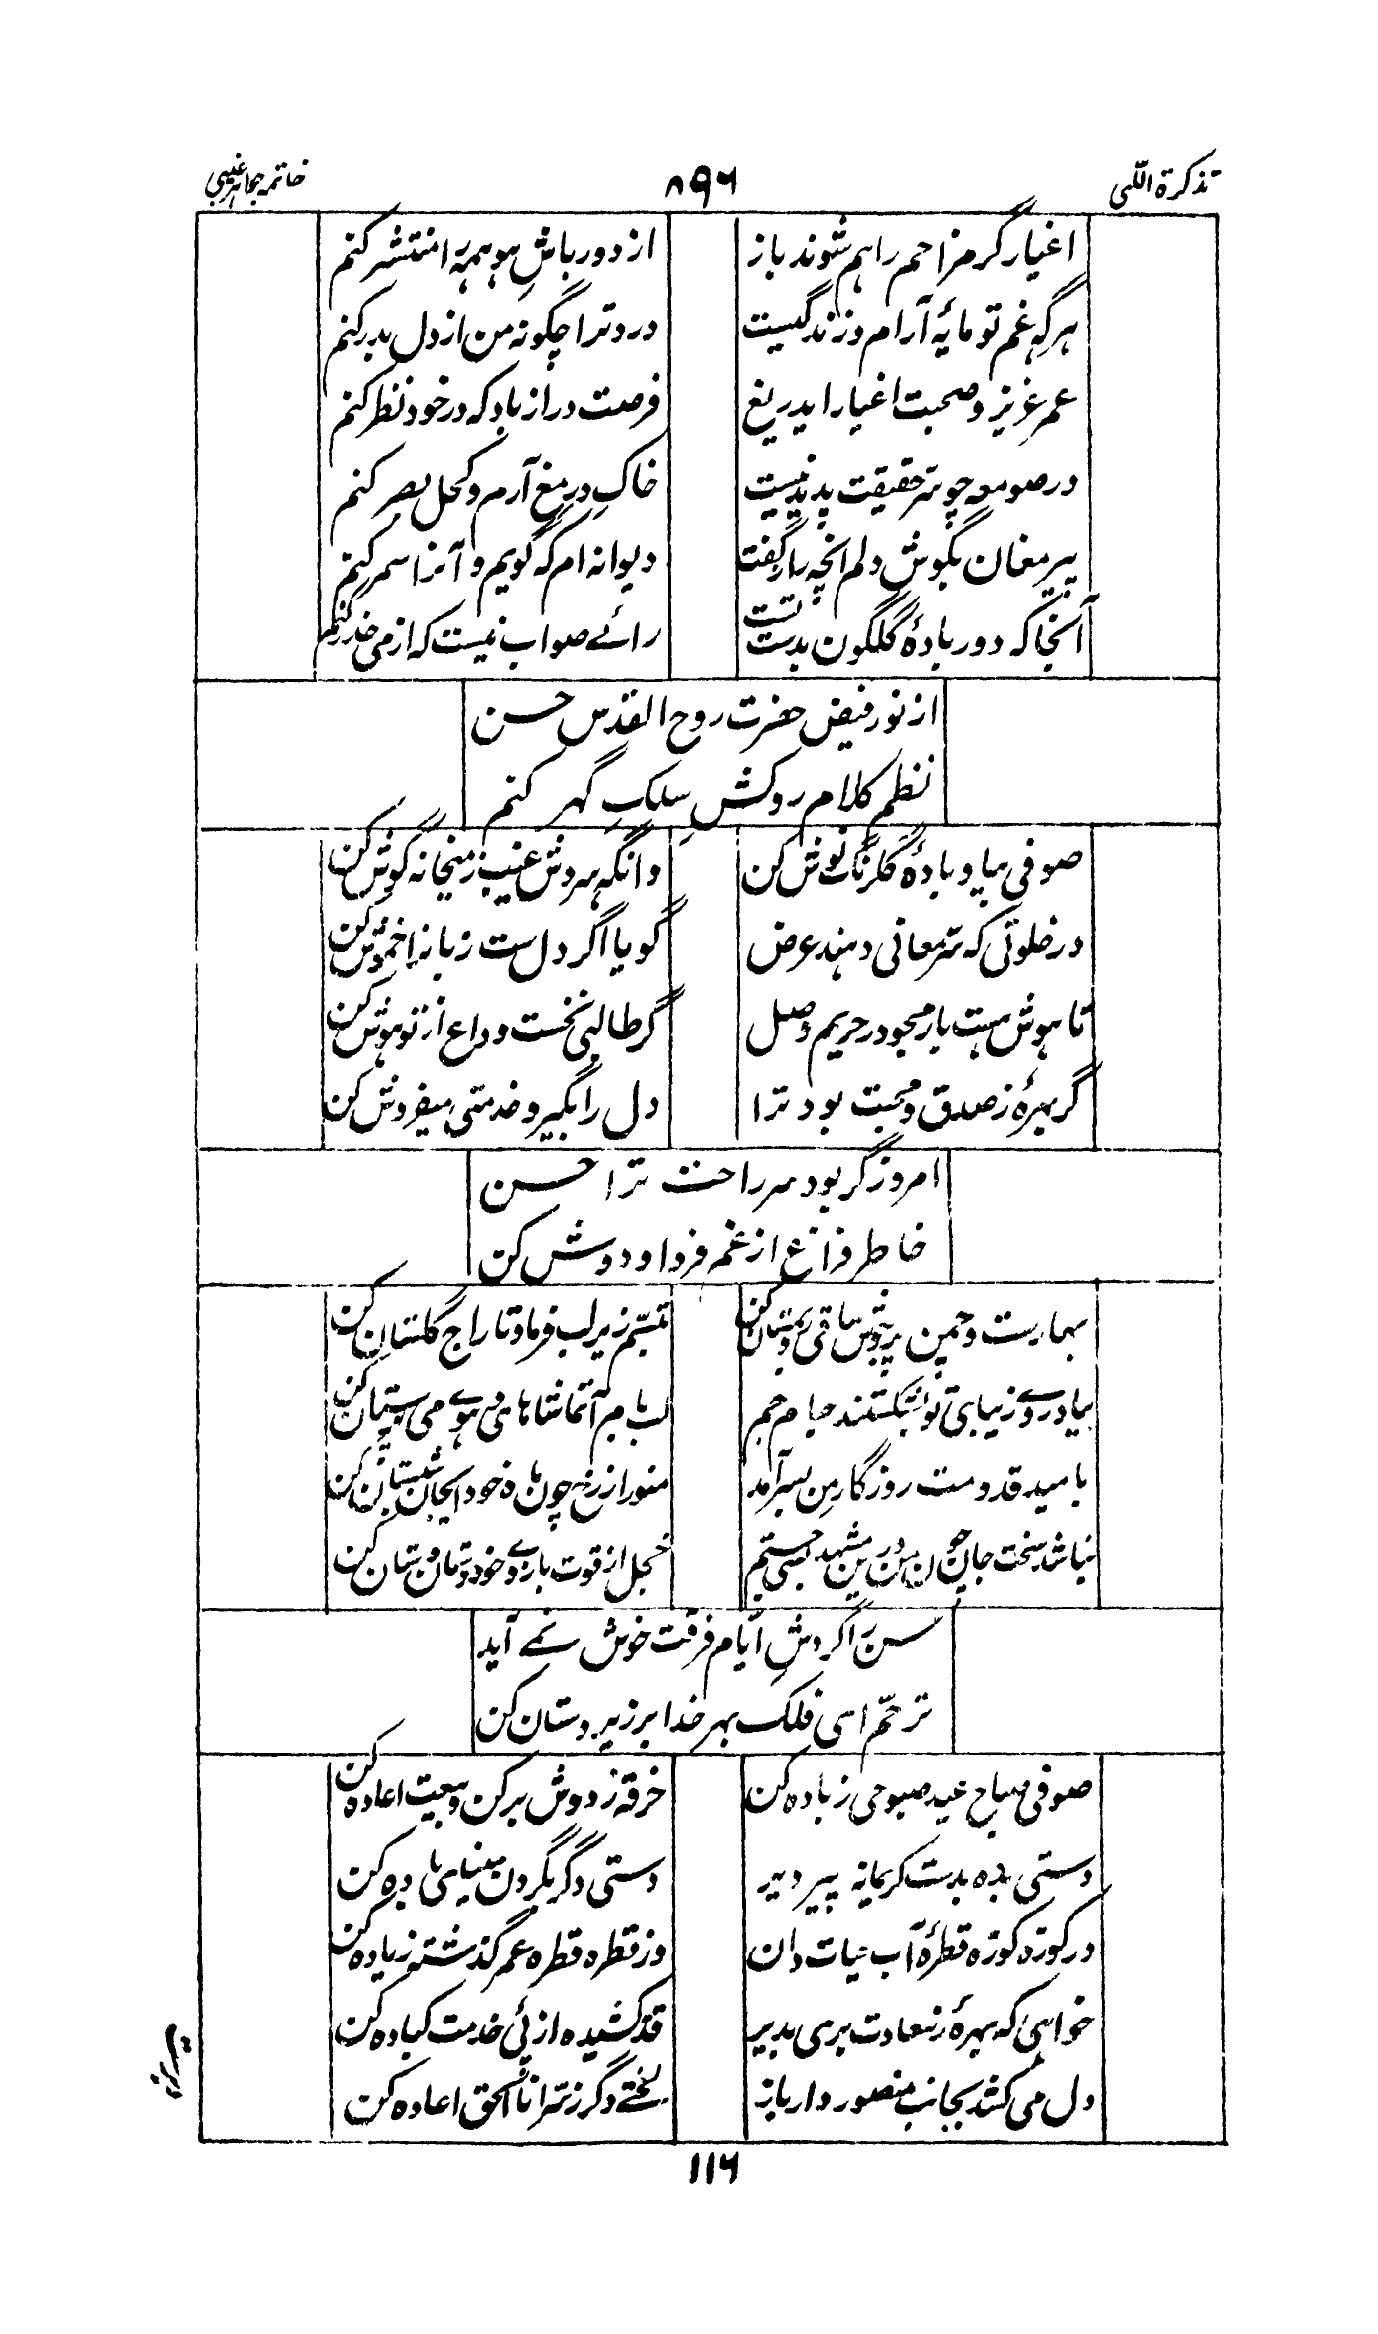 تذکرة اللهی
۸۹۶
خاتمه جواهر غیبی
اغیار گر مزاحم راهم شوند باز
از دور باشِ هو همه را منتشر کنم
هر گه غم تو مایهٔ آرام و زندگیست
درد ترا چگونه من از دل بدر کنم
عمر عزیز و صحبت اغیار ایدریغ
فرصت دراز باد که در خود نظر کنم
در صومعه چو سرّ حقیقت پدید نیست
خاکِ درِ مغ آرم و کحل بصر کنم
پیر مغان بگوش دلم انچه راز گفت
دیوانه ام که گویم و آنرا سمر کنم
آنجا که دور بادهٔ گلگون بدست تست
رائے صواب نیست که از می حذر کنم
از نور فیض حضرت روح القدس حسن
نظم کلام روکش سلکِ گهر کنم
صوفی بیا و بادهٔ گلرنگ نوش کن
وانگه سروش غیب ز میخانه گوش کن
در خلوتی که سرّ معانی دهند عرض
گویا اگر دل ست زبانرا خموش کن
تا هوش هست بار مجو در حریم وصل
گر طالبی نخست وداع از تو هوش کن
گر بهرهٔ ز صدق و محبت بود ترا
دل را بگیر و خدمتی میفروش کن
امروز گر بود سر راحت ترا حسن
خاطر فراغ از غم فردا و دوش کن
بهارست و چمن پر جوش ساقی رو بمستان کن
تبسّم زیر لب فرما و تاراج گلستان کن
بیا در روے زیبای تو بشکستند جام جم
لب بام بر آ تماشا های و هوے می پرستان کن
بامید قدومت روزگار من بسر آمد
منور از رخ چون ماه خود ایجان شبستان کن
نباشد سخت جان چون من درین مشهد بسی جستم
خجل از قوت بازوے خود دستان کن
حسن را گردشِ ایّام فرقت خوش نمے آید
ترحّم ای فلک بهر خدا بر زیر دستان کن
صوفی صباح عید صبوحی ز باده کن
خرقه ز دوش برکن و بیعت اعاده کن
دستی بده بدست کریمانه پیر دیر
دستی دگر بگردن مینای باده کن
در کوزه کوزه قطرهٔ آب حیات دان
وز قطره قطره عمر گذشته زیاده کن
خواهی که بهرهٔ ز سعادت بری بدیر
قدّ کشیده از پی خدمت کباده کن
دل می کشد بجانب منصور دار باز
لختے دگر ز سرّ انا الحق اعاده کن
۱۱۶